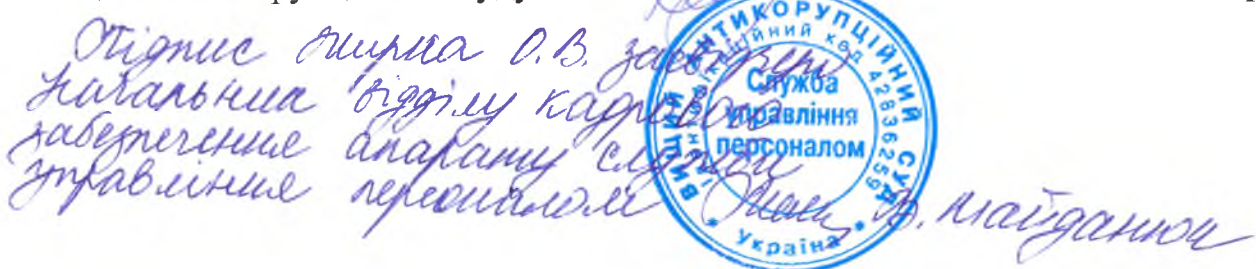 Підпис Жирка О.В. засвідчую
Начальник відділу кадрового
забезпечення апарату служби
управління персоналом В. Майданюк
ВИЩИЙ АНТИКОРУПЦІЙНИЙ СУД
Ідентифікаційний код 42836259
Служба
управління
персоналом
* Україна *